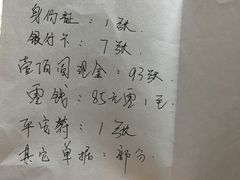 身份证：1张.
银行卡：7张.
壹佰圆现金：93张.
零钱：85元零1毛.
平安符：1张
其它单据：部分.